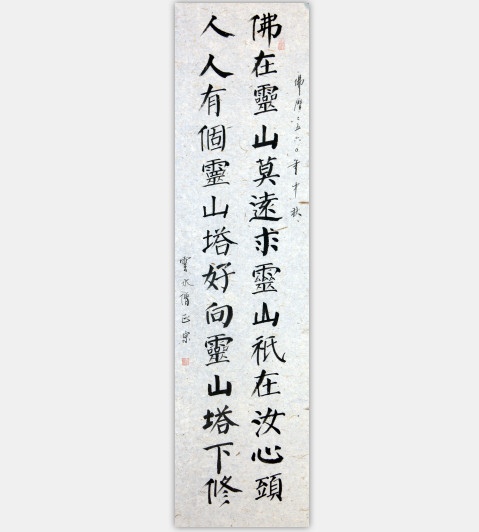 佛在靈山莫遠求靈山祇在汝心頭
人人有個靈山塔好向靈山塔下修
佛曆二五六〇年中秋
雲水僧正宗